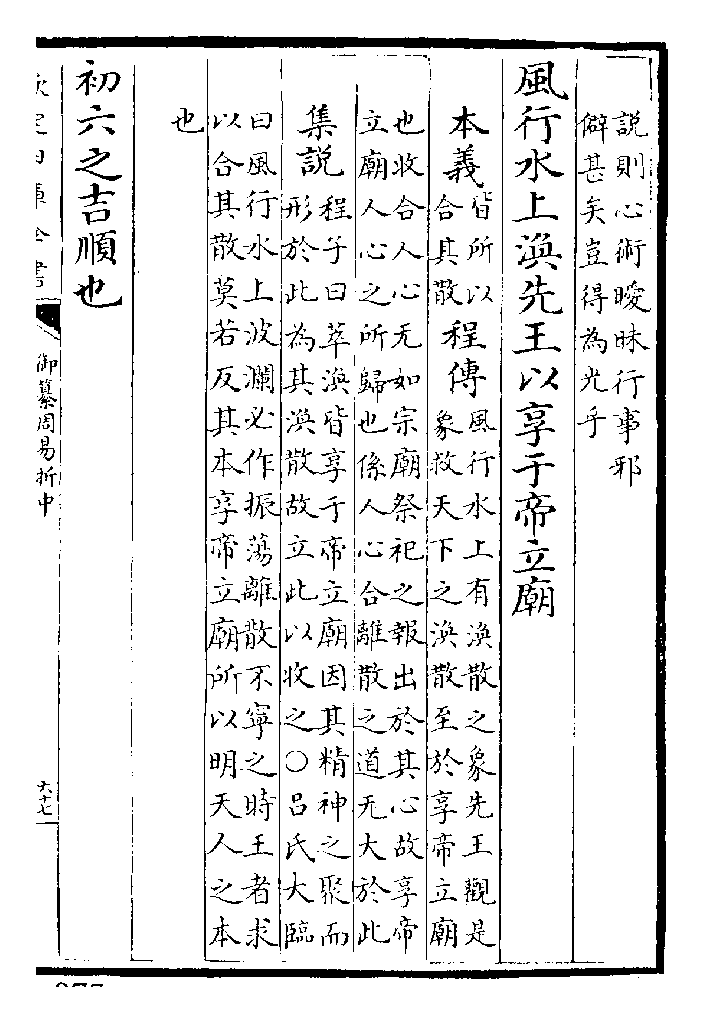 說則心術曖昧行事邪
僻甚矣豈得為光乎
風行水上渙先王以享于帝立廟
本義皆所以
合其散程傳風行水上有渙散之象先王觀是
象救天下之渙散至於享帝立廟
也收合人心无如宗廟祭祀之報出於其心故享帝
立廟人心之所歸也係人心合離散之道无大於此
集説程子曰萃渙皆享于帝立廟因其精神之聚而
形於此為其渙散故立此以收之○呂氏大臨
曰風行水上波瀾必作振蕩離散不寧之時王者求
以合其散莫若反其本享帝立廟所以明天人之本
也
初六之吉順也
欽定四庫全書
御纂周易折中
六十七